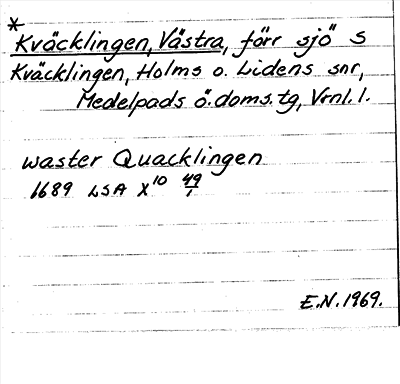 *
Kväcklingen, Västra, förr sjö S
Kväcklingen, Holms o. Lidens snr,
Medelpads ö. doms. tg, Vrnl. l.
waster Quacklingen
1689 LSA X¹⁰ 49/1
E.N. 1969.